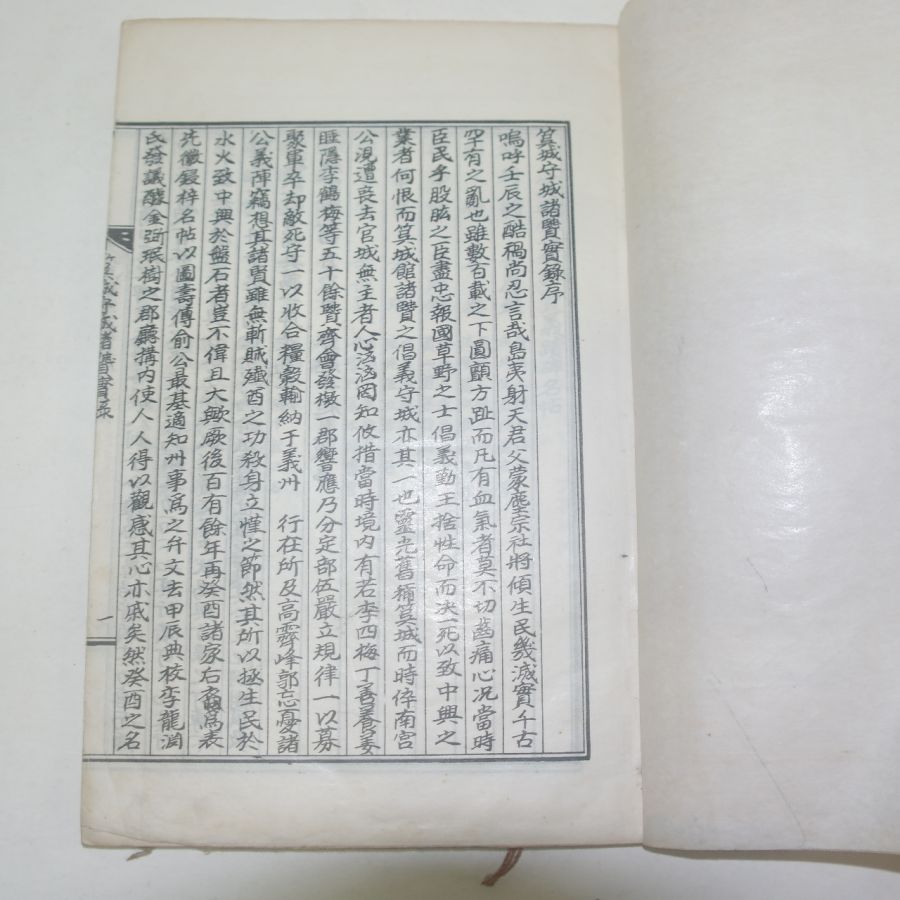 箕城守城諸賢實錄序
嗚呼壬辰之酷禍尚忍言哉島夷射天君父蒙塵宗社將傾生民幾滅實千古
罕有之亂也雖數百載之下圓顱方趾而凡有血氣者莫不切齒痛心况當時
臣民乎股肱之臣盡忠報國草野之士倡義勤王捨性命而决一死以致中興之
業者何恨而箕城館諸賢之倡義守城亦其一也靈光舊稱箕城而時倅南宮
公涀遭喪去官城無主者人心汹汹罔知攸措當時境內有若李四梅丁善養姜
睡隱李鶴梅等五十餘賢齊會發檄一郡響應乃分定部伍嚴立規律一以募
聚軍卒却敵死守一以收合糧穀輸納于義州 行在所及高霽峰郭忘憂諸
公義陣竊想其諸賢雖無斬賊殲酋之功殺身立慬之節然其所以拯生民於
水火致中興於盤石者豈不偉且大歟厥後百有餘年再癸酉諸家右裔爲表
先徽鋟梓名帖以圖壽傳俞公最基適知州事爲之弁文去甲辰典校李龍淵
氏發議醵金斲珉樹之郡廳搆內使人人得以觀感其心亦戚矣然癸酉之名
箕城守城諸賢實錄
一